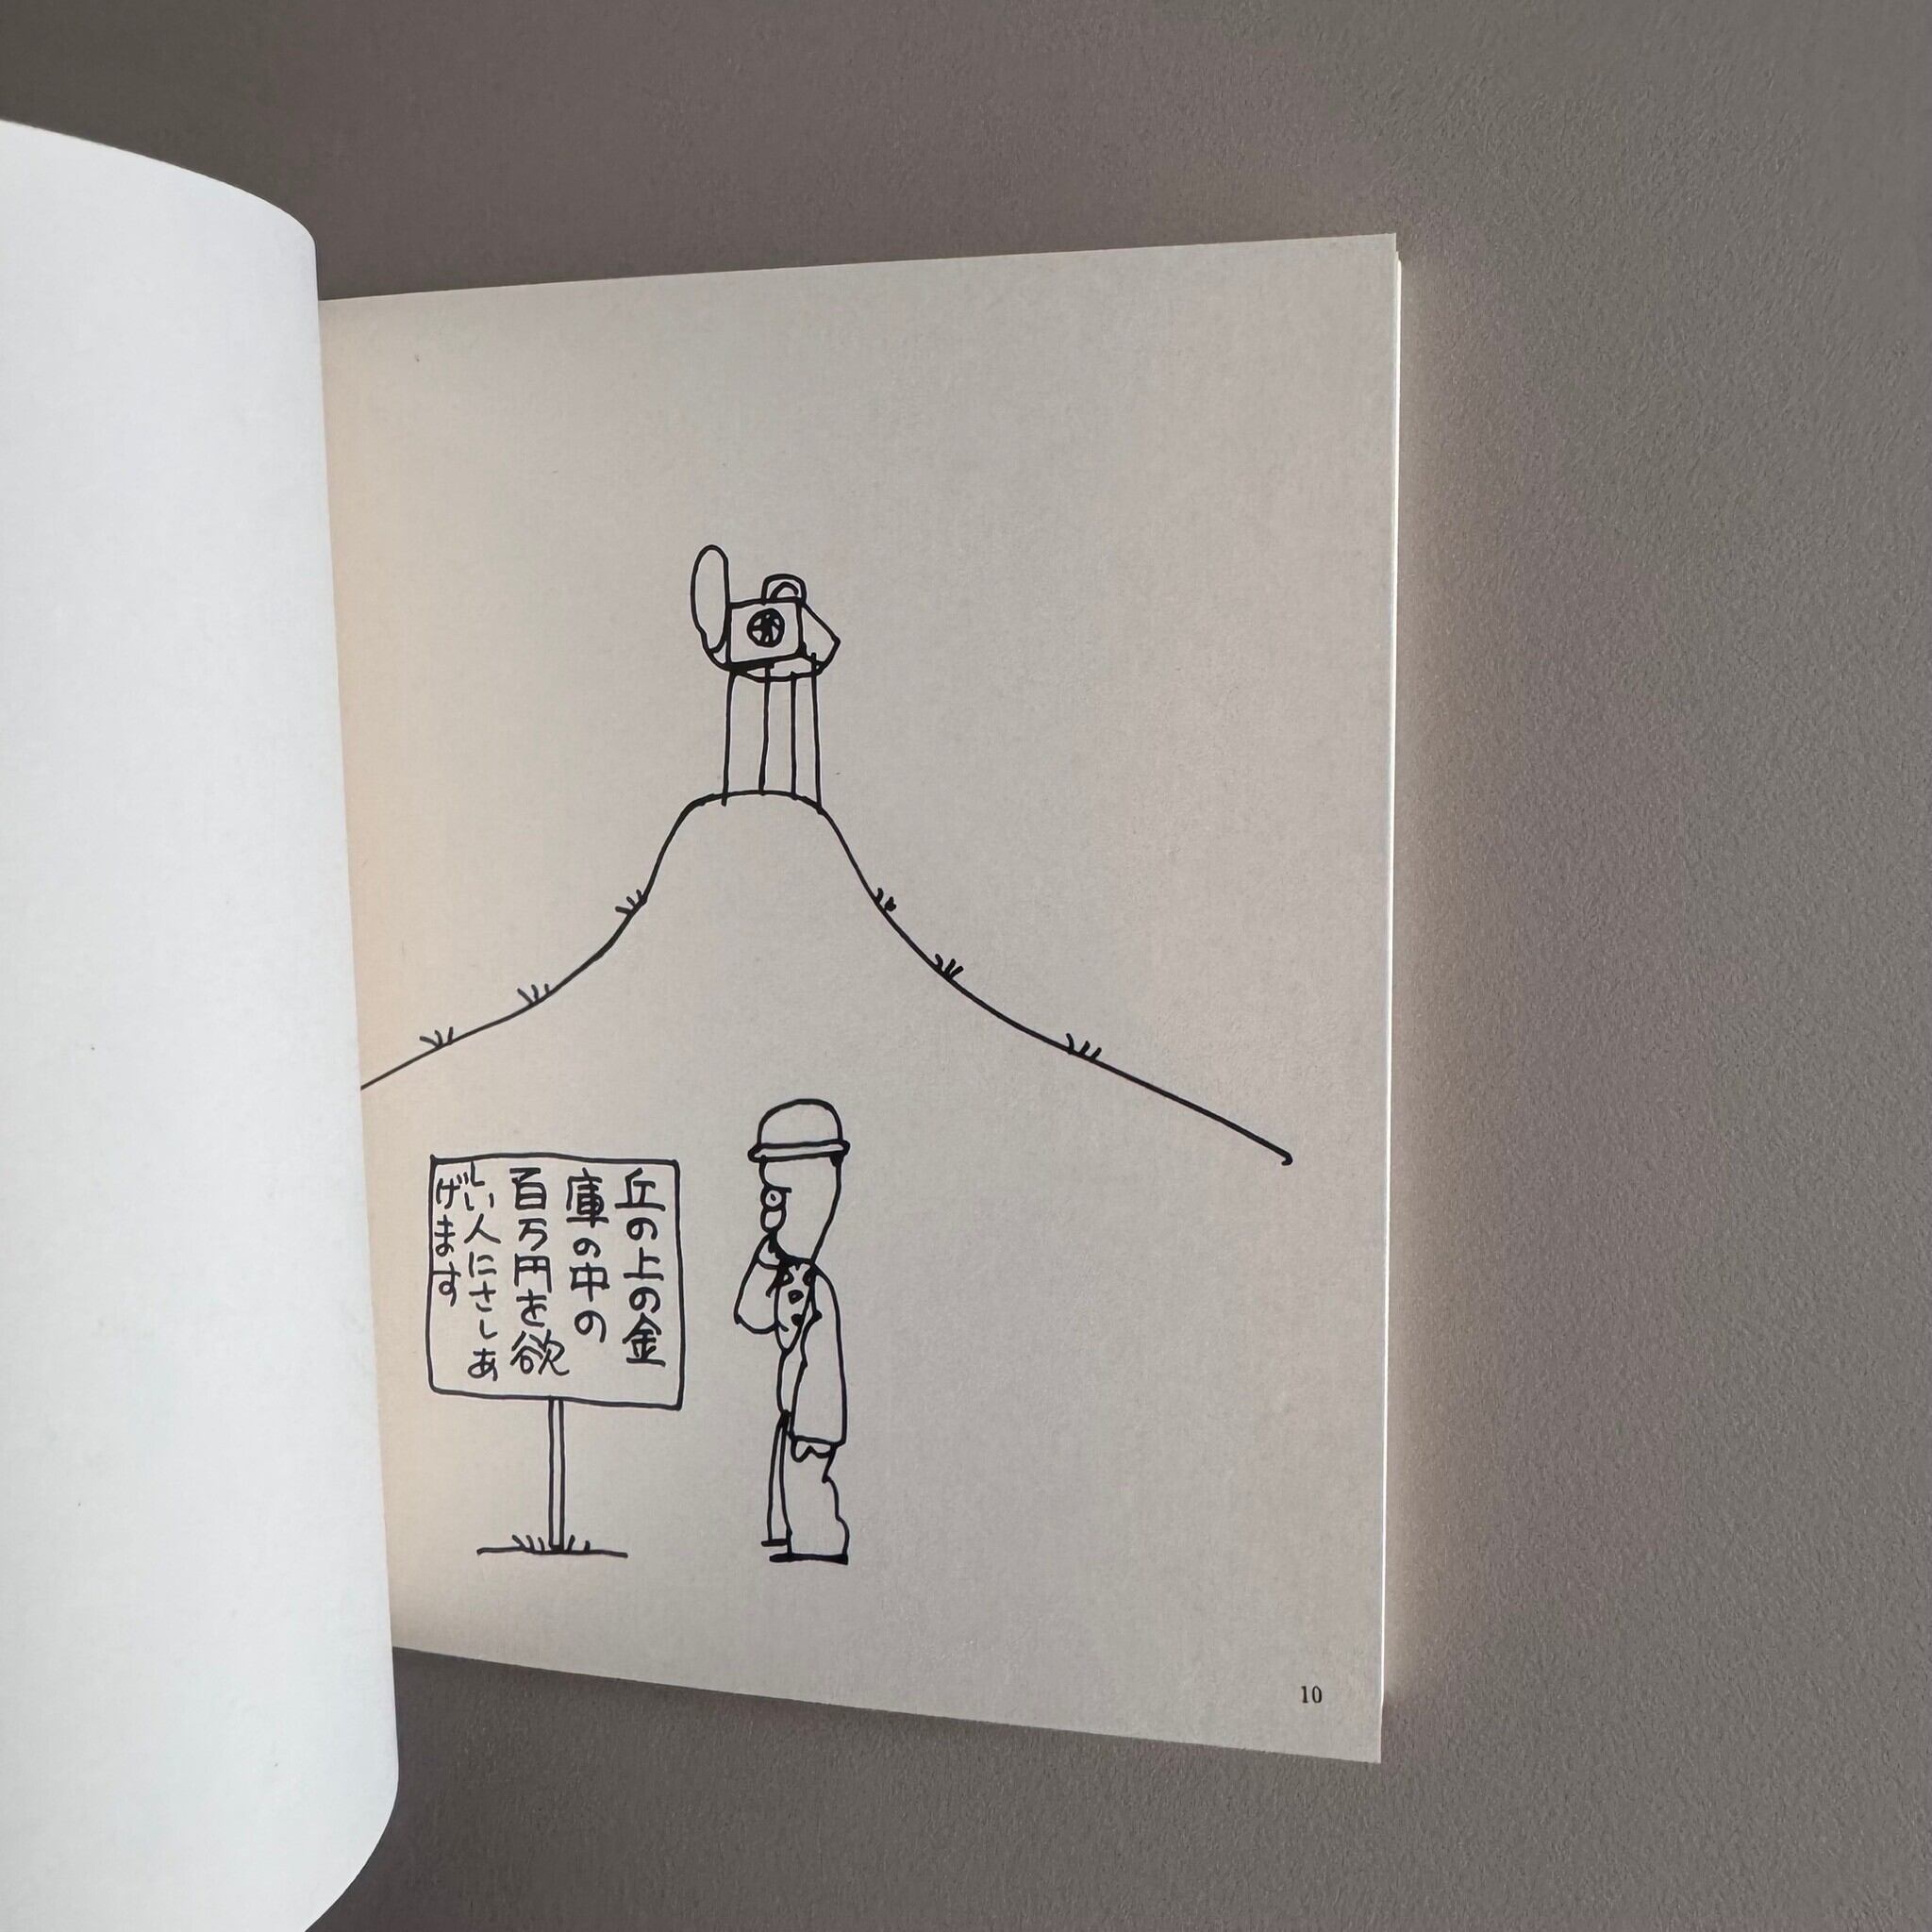 丘の上の金
庫の中の
百万円を欲
しい人にさしあ
げます
10